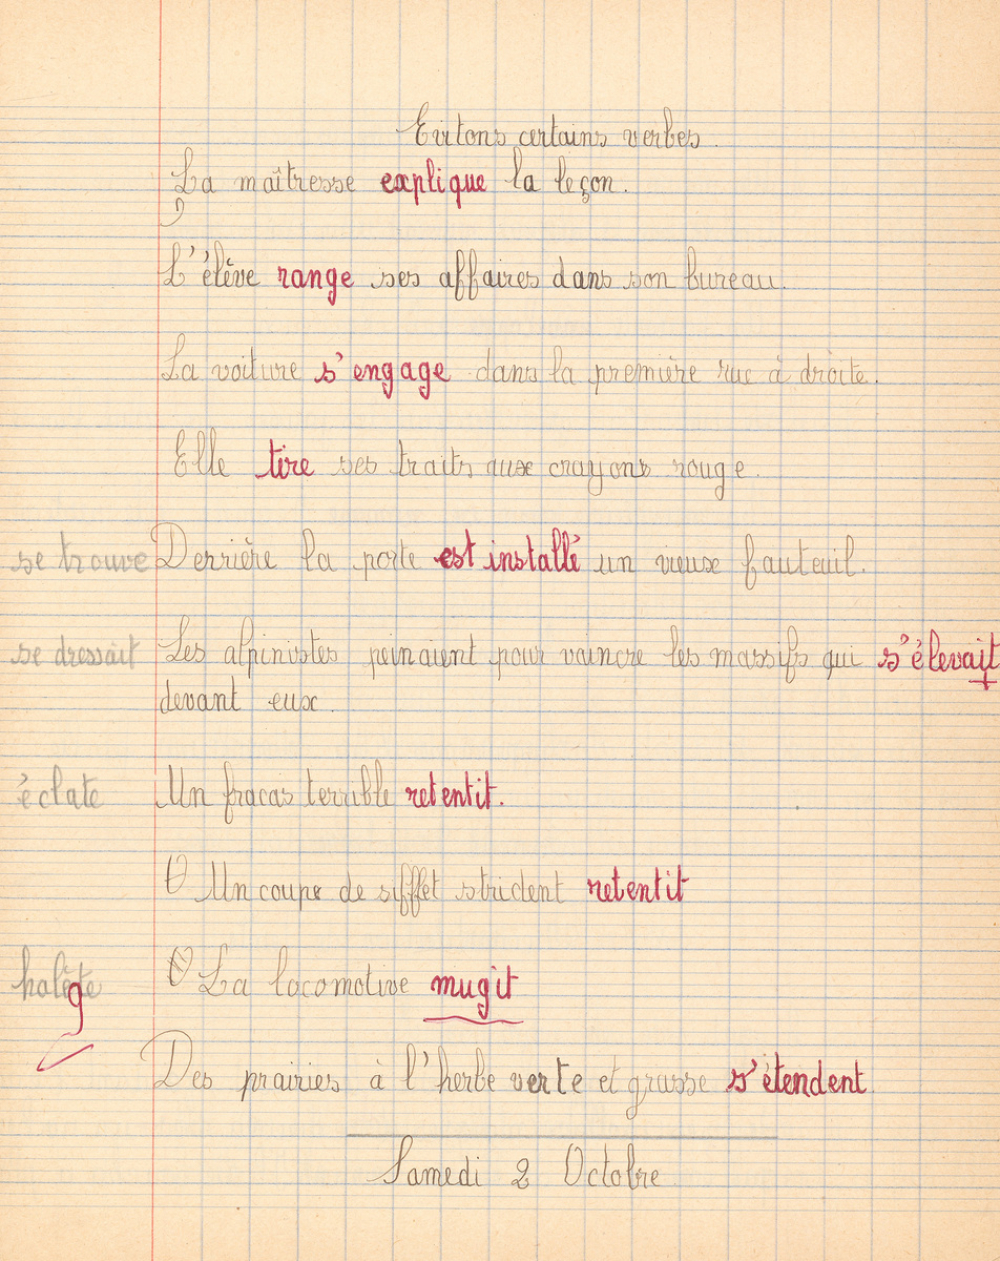 Evitons certains verbes.
La maîtresse explique la leçon.
L'élève range ses affaires dans son bureau.
La voiture s'engage dans la première rue à droite.
Elle tire ses traits aux crayons rouge.
se trouve Derrière la porte est installé un vieux fauteuil.
se dressait Les alpinistes peinaient pour vaincre les massifs qui s'élevait
devant eux.
éclate Un fracas terrible retentit.
Un coupe de sifflet strident retentit
halète La locomotive mugit
g
Des prairies à l'herbe verte et grasse s'étendent.
Samedi 2 Octobre